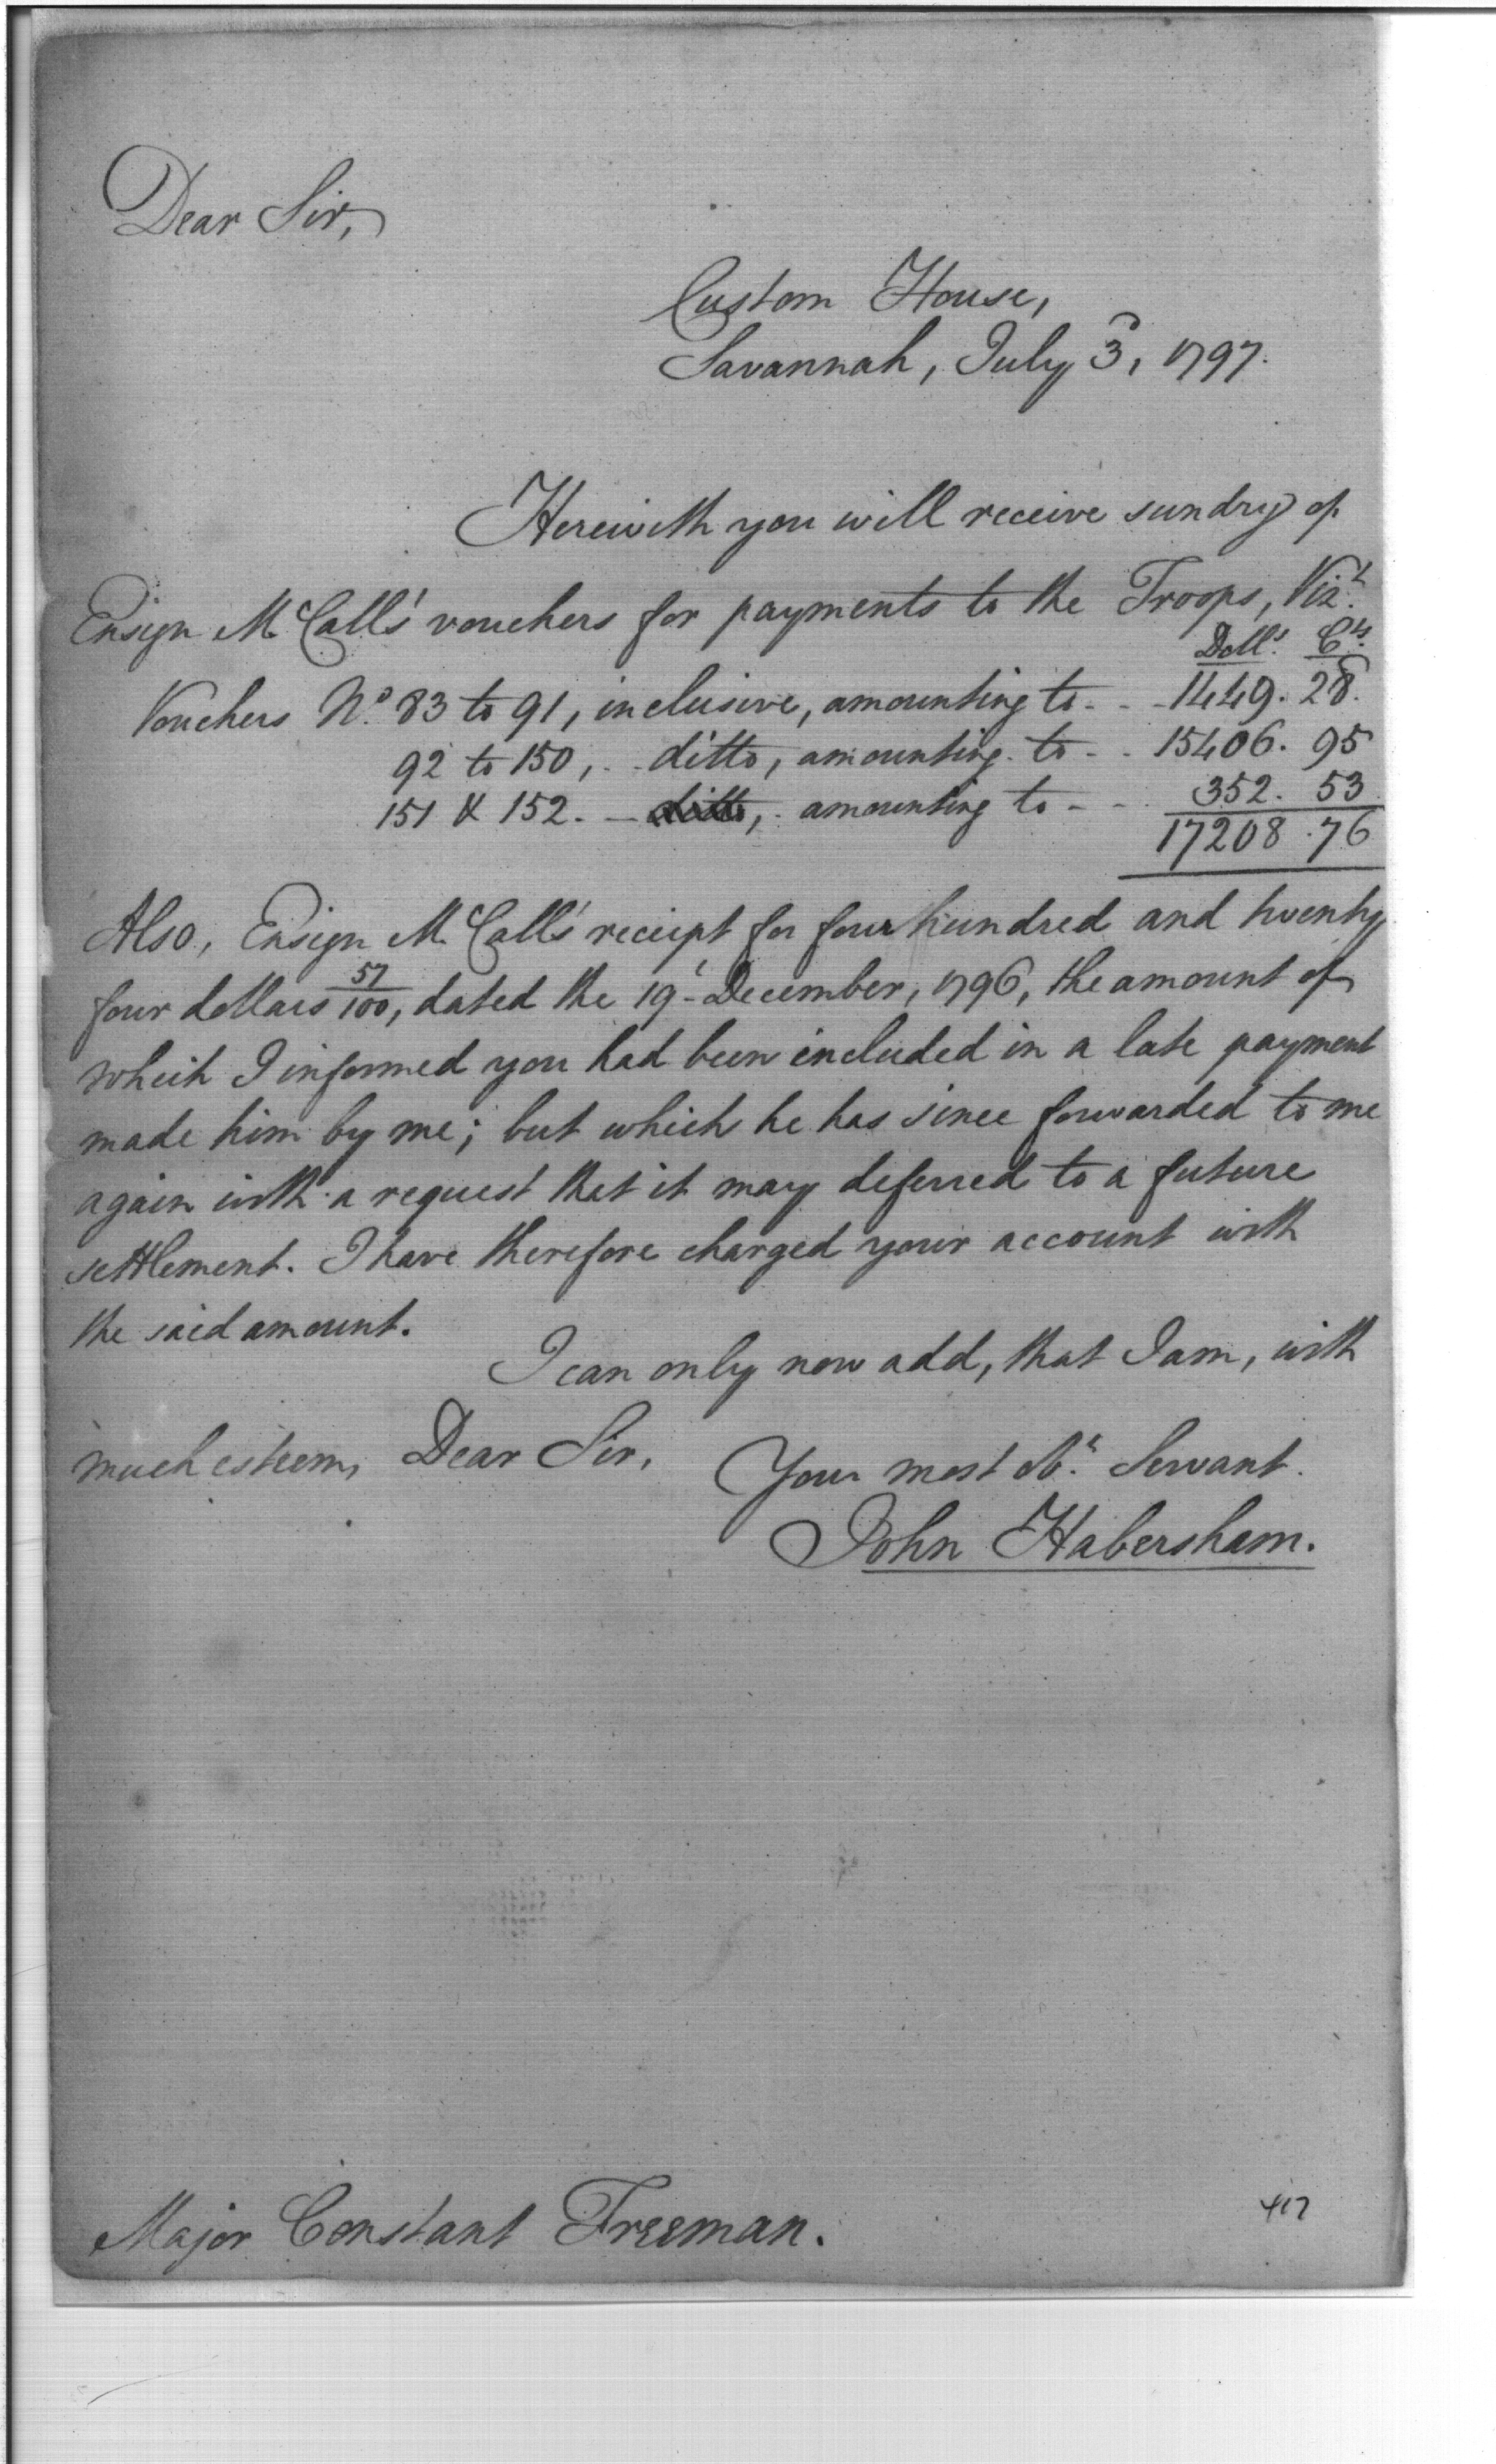 Dear Sir,
Custom House,
Savannah, July 3d, 1797.
Herewith you will receive sundry of
Ensign McCall's vouchers for payments to the Troops, Vizt.
Dolls. Cts.
Vouchers No. 83 to 91, inclusive, amounting to - - - 1449. 28.
92 to 150, - - ditto, amounting to - - 15406. 95
151 & 152. - ditto, - amounting to - - - 352. 53
17208. 76
Also, Ensign McCall's receipt for four hundred and twenty
four dollars 57/100, dated the 19t. December, 1796, the amount of
which I informed you had been included in a late payment
made him by me; but which he has since forwarded to me
again with a request that it may deferred to a future
settlement. I have therefore charged your account with
the said amount.
I can only now add, that I am, with
much esteem, Dear Sir,
Your most obt. Servant.
John Habersham.
Major Constant Freeman.
417